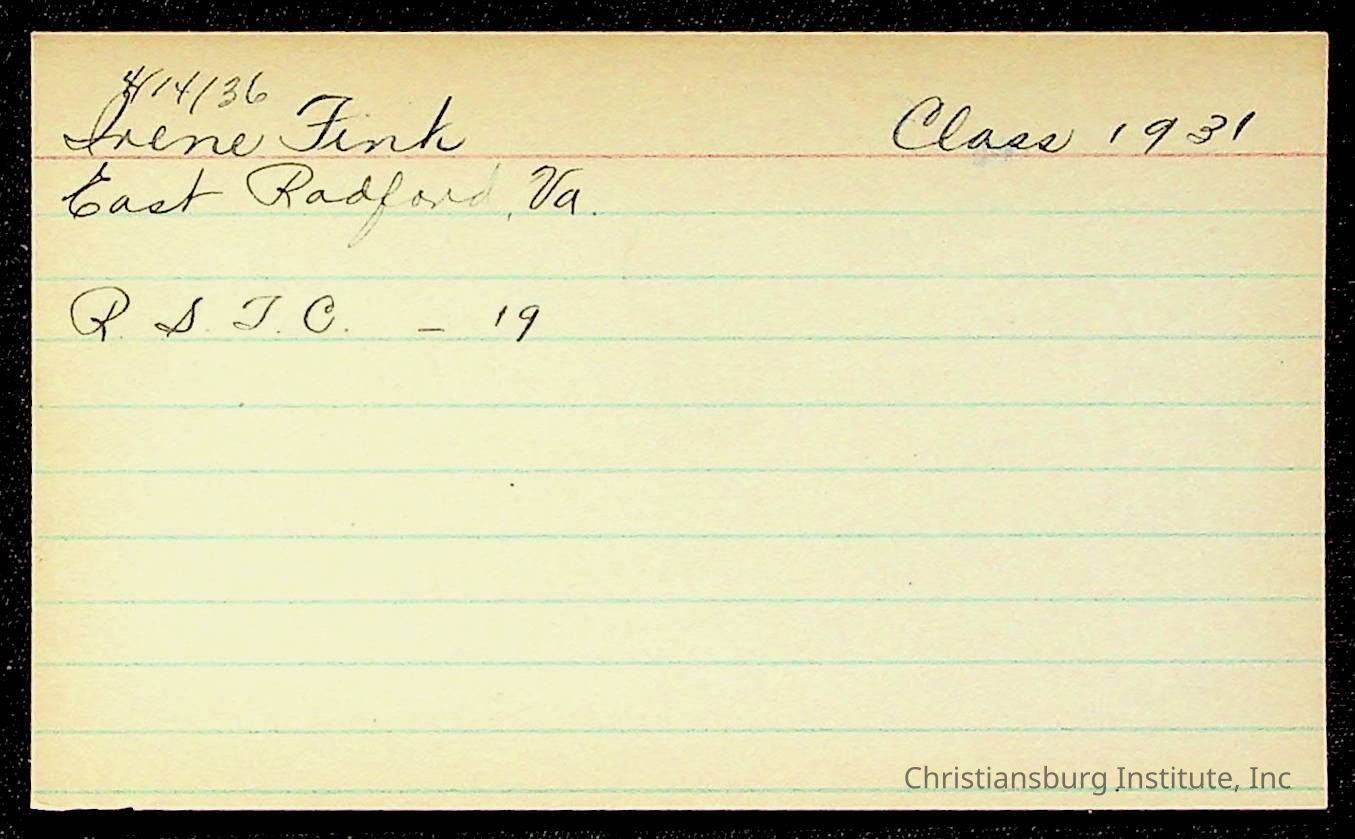 4/14/36
Irene Fink Class 1931
East Radford, Va.
R. S. T. C. - 19
Christiansburg Institute, Inc